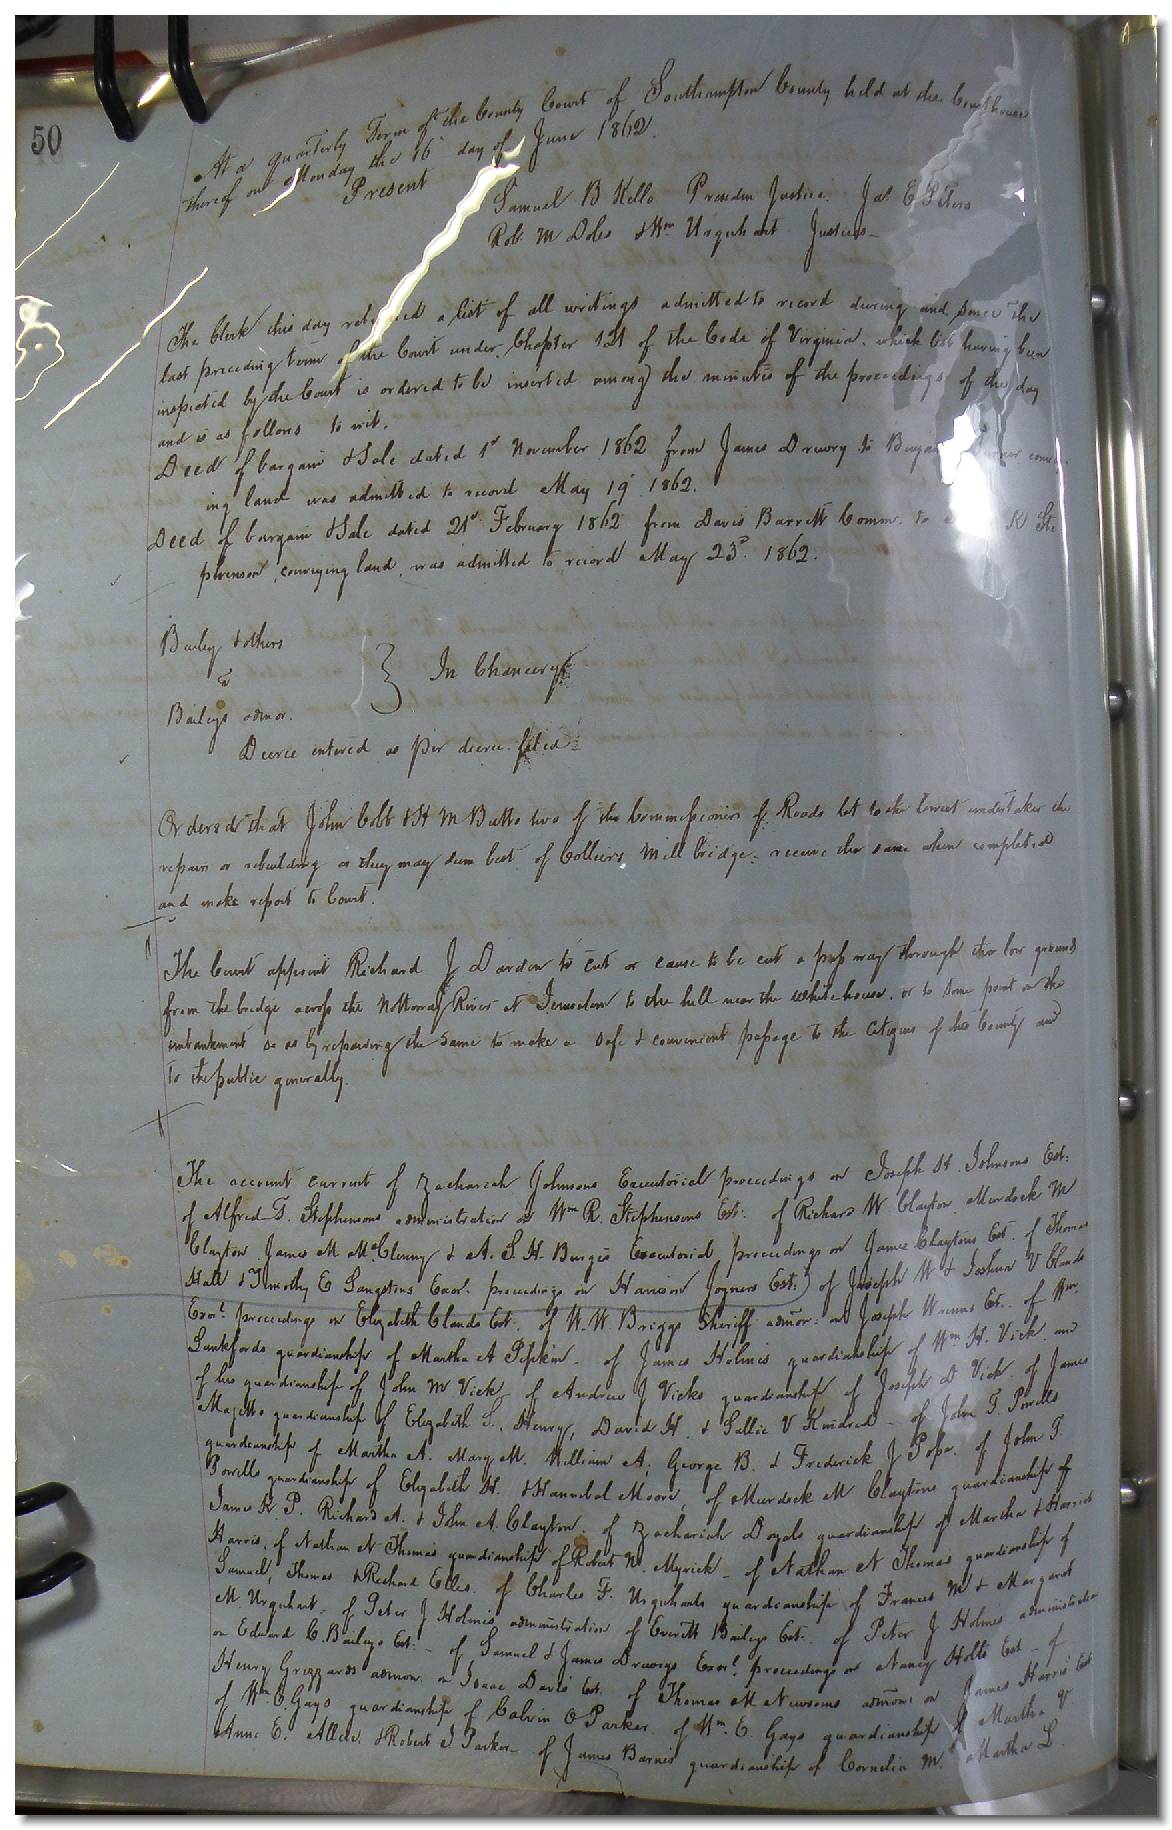 50
At a quarterly Term of the County Court of Southampton County held at the Courthouse
thereof on Monday the 16 day of June 1862.
Present
Samuel B Kello Presiden Justice. Jas. E Peters
Rob. M Doles & Wm Urquhart Justices
The Clerk this day returned a list of all writings admitted to record during and since the
last preceding term of the Court under Chapter 121 of the Code of Virginia, which list having been
inspected by the Court is ordered to be inserted among the minutes of the proceedings of the day
and is as follows to wit.
Deed of bargain & Sale dated 1st November 1862 from James Drewry to convey-
ing land was admitted to record May 19 1862.
Deed of bargain & Sale dated 21st February 1862 from Davis Barrett Comm. to K Ste
phenson, conveying land, was admitted to record May 23d 1862.
Bailey & others
vs
Baileys admor.
} In Chancery
Decree entered as per decree filed
Ordered that John Cobb & H M Butts two of the Commissioners of Roads let to the lowest undertaker the
repairs or rebuilding as they may deem best of Colliers Mill bridge. receive the same when completed
and make report to Court.
The Court appoint Richard J Darden to cut or cause to be cut a passway through the low grounds
from the bridge across the Nottoway River at Jerusalem to the hill near the whitehouse, or to some point on the
embankment so as by repairing the same to make a safe & convenient passage to the Citizens of this County and
to the public generally.
The account current of Zachariah Johnsons Executorial proceedings on Joseph H. Johnsons Est:
of Alfred T. Stephensons administration on Wm R. Stephensons Est: of Richard W Clayton Murdock M
Clayton James M McClenny & A. S. H. Burges Executorial proceedings on James Claytons Est. of Thomas
Hall & Timothy E Langstons Exor. proceedings on Harrison Joyners Est:) of Joseph W & Joshua V Glands
Exorl. proceedings on Elizabeth Glands Est. of W. W Briggs Sheriff admor: on Joseph Est. of Wm.
Lankfords guardianship of Martha A Pipkin - of James Holmes guardianship of Wm H. Vick and
of his guardianship of John M Vick - of Andrew J Vicks guardianship of Joseph D Vick. of James
Majetts guardianship of Elizabeth S., Henry, David H. & Sallie V Kindred - of John T. Powells
guardianship of Martha A. Mary M. William A, George B. & Frederick J Pope. of John T.
Powells guardianship of Elizabeth H. & Hannibal Moore, of Murdock M Claytons guardianship of
James K. P. Richard A. & John A. Clayton of Zachariah Doyals guardianship of Martha & Harriet
Harris, of Nathan N Thomas guardianship of Robert N. Myrick - of Nathan N Thomas guardianship of
Samuel, Thomas & Richard Ellis. of Charles F. Urquharts guardianship of Frances M & Margaret
M Urquhart - of Peter J Holmes administration of Everett Baileys Est. of Peter J Holmes administration
on Edward C. Baileys Est: - of Samuel & James Drewrys Exorl. proceedings on Nancy Holts Est - of
Henry Grizzards admor. on Isaac Davis Est. of Thomas M Newsoms admor: on James Harris Est
of Wm E Gays guardianship of Calvin O Parker. of Wm. E Gays guardianship of Martha V.
Anne E. & Robert S Parker - of James Barnes guardianship of Cornelia M. Martha L.